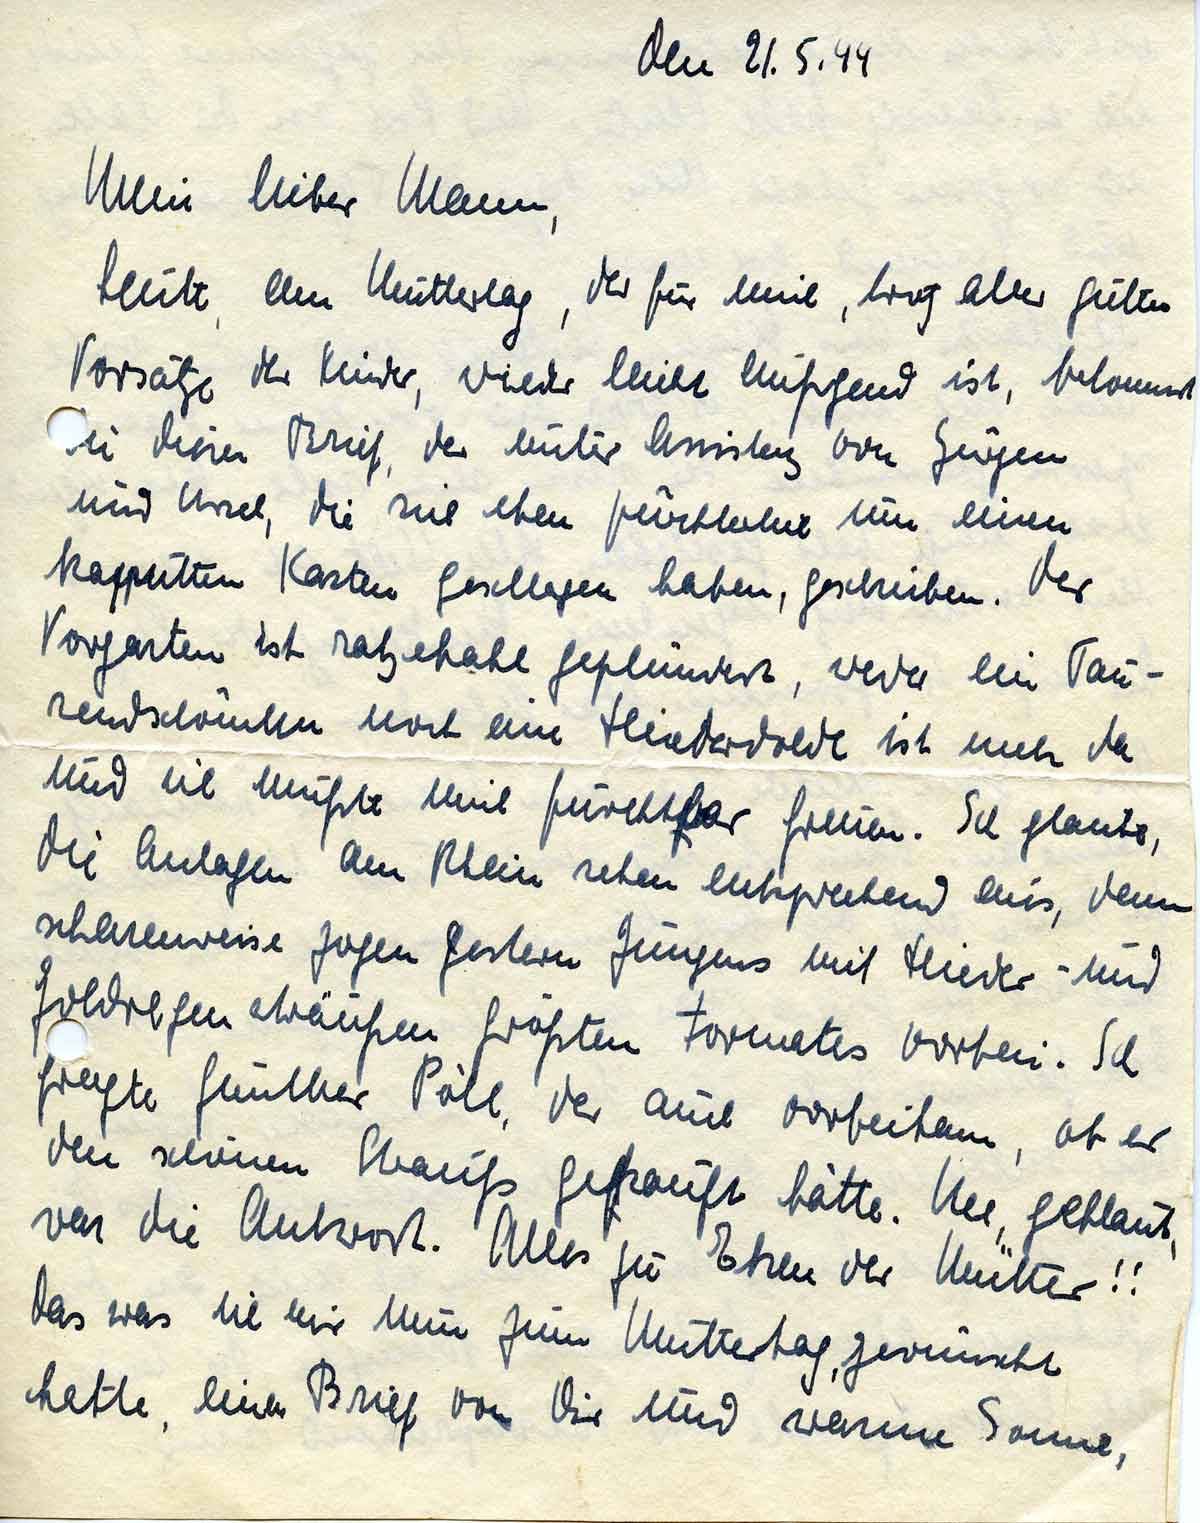 den 21.5.44
Mein lieber Mann,
heute, am Muttertag, der für mich, trotz aller guten
Vorsätze der Kinder, wieder leicht aufregend ist, bekommst
Du diesen Brief, der unter Assistenz von Jürgen
und Ursel, die sich eben fürchterlich um einen
kapputten Kasten geschlagen haben, geschrieben. Der
Vorgarten ist ratzekahl geplündert, weder ein Tau-
sendschönchen noch eine Fliederdolde ist mehr da
und ich mußte mich furchtbar freuen. Ich glaube,
die Anlagen am Rhein sehen entsprechend aus, denn
scharenweise zogen gestern Jungens mit Flieder- und
Goldregensträußen größten Formates vorbei. Ich
fragte Günther Pöll, der auch vorbeikam, ob er
den schönen Strauß gekauft hätte. Nee, geklaut,
war die Antwort. Alles zu Ehren der Mütter!!
Das was ich mir nun zum Muttertag gewünscht
hatte, einen Brief von Dir und warme Sonne,